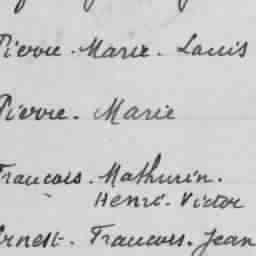 Pierre. Marie. Louis
Pierre. Marie
Francois. Mathurin.
Henri. Victor
Ernest. Francois. Jean